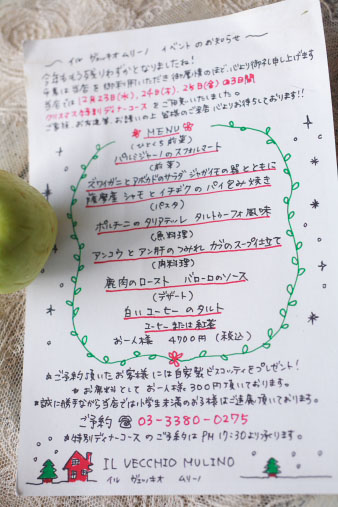 ～ イル ヴェッキオ ムリーノ イベントのお知らせ ～
今年も残りわずかとなりましたね!
当店では12月23日(水)、24日(木)、25日(金)の3日間
クリスマス特別ディナーコースをご用意いたしました。
ご家族、お友達等、お誘いの上 皆様のご来店心よりお待ちしております!!
MENU
(ひとくち前菜)
パルミジャーノのスフォルマート
(前菜)
ズワイガニとアボカドのサラダ ジャガイモの器とともに
薩摩産シャモとイチヂクのパイ包み焼き
(パスタ)
ポルチーニのタリアテッレ タルトゥーフォ風味
(魚料理)
アンコウとアン肝のつみれ カブのスープ仕立て
(肉料理)
鹿肉のロースト バローロのソース
(デザート)
白いコーヒーのタルト
コーヒーまたは紅茶
お一人様 4700円 (税込)
ご予約頂いたお客様には自家製ビスコッティをプレゼント!
お席料として お一人様300円頂いております。
誠に勝手ながら当店では小学生未満のお子様はご遠慮頂いております。
ご予約 ☎ 03-3380-0275
特別ディナーコースのご予約はPM 17:30より承ります。
IL VECCHIO MULINO
イル ヴェッキオ ムリーノ